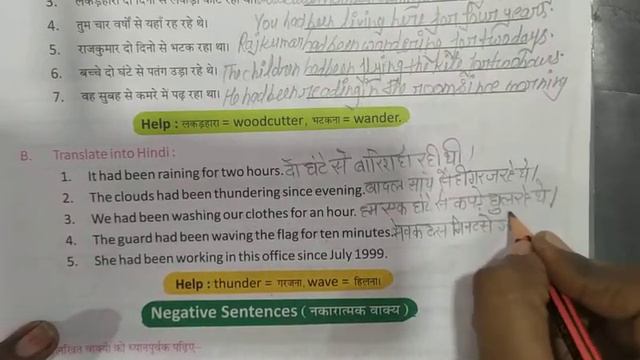 3. लकड़हारा दो दिनों से लकड़ी काट रहा था।
4. तुम चार वर्षों से यहाँ रह रहे थे। You had been living here for four years.
5. राजकुमार दो दिनो से भटक रहा था। Rajkumar had been wandering for two days.
6. बच्चे दो घंटे से पतंग उड़ा रहे थे। The children had been flying the kite for two hours.
7. वह सुबह से कमरे में पढ़ रहा था। He had been reading in the room since morning
Help : लकड़हारा = woodcutter, भटकना = wander.
B. Translate into Hindi :
1. It had been raining for two hours. दो घंटे से बारिश हो रही थी।
2. The clouds had been thundering since evening. बादल सायं से ही गरज रहे थे।
3. We had been washing our clothes for an hour. हम एक घंटे से कपड़े धुल रहे थे।
4. The guard had been waving the flag for ten minutes. सेवक दस मिनट से
5. She had been working in this office since July 1999.
Help : thunder = गरजना, wave = हिलना।
Negative Sentences ( नकारात्मक वाक्य )
वाक्यों को ध्यानपूर्वक पढ़िए–